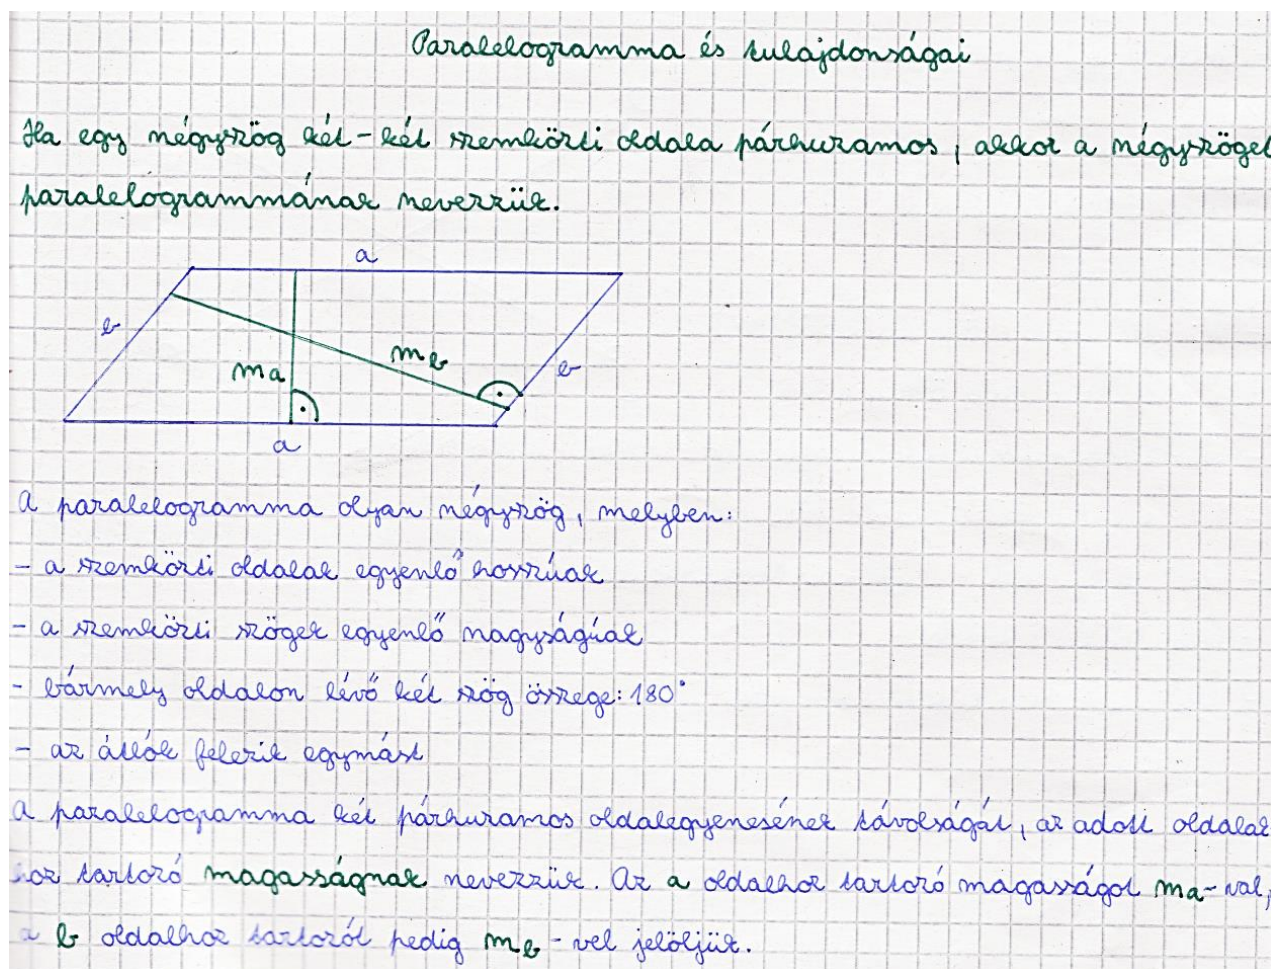 Paralelogramma és tulajdonságai
Ha egy négyszög két-két szemközti oldala párhuzamos, akkor a négyszöget
paralelogrammának nevezzük.
a
b
mb
b
ma
a
A paralelogramma olyan négyszög, melyben:
- a szemközti oldalak egyenlő hosszúak
- a szemközti szögek egyenlő nagyságúak
- bármely oldalon lévő két szög összege: 180°
- az átlók felezik egymást
A paralelogramma két párhuzamos oldalegyenesének távolságát, az adott oldalak
hoz tartozó magasságnak nevezzük. Az a oldalhoz tartozó magasságot ma-val,
a b oldalhoz tartozót pedig mb-vel jelöljük.